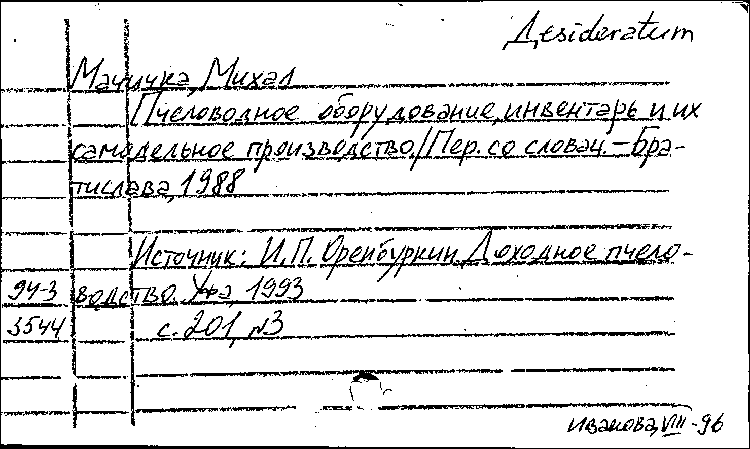 Desideratum
Мачичка, Михал
Пчеловодное оборудование, инвентарь и их
самодельное производство./Пер. со словац. – Бра-
тислава, 1988
Источник: И.П. Оренбуркин. Доходное пчело-
94-3 водство. Уфа, 1993
3544 с. 201, №3
Иванова, VIII-96